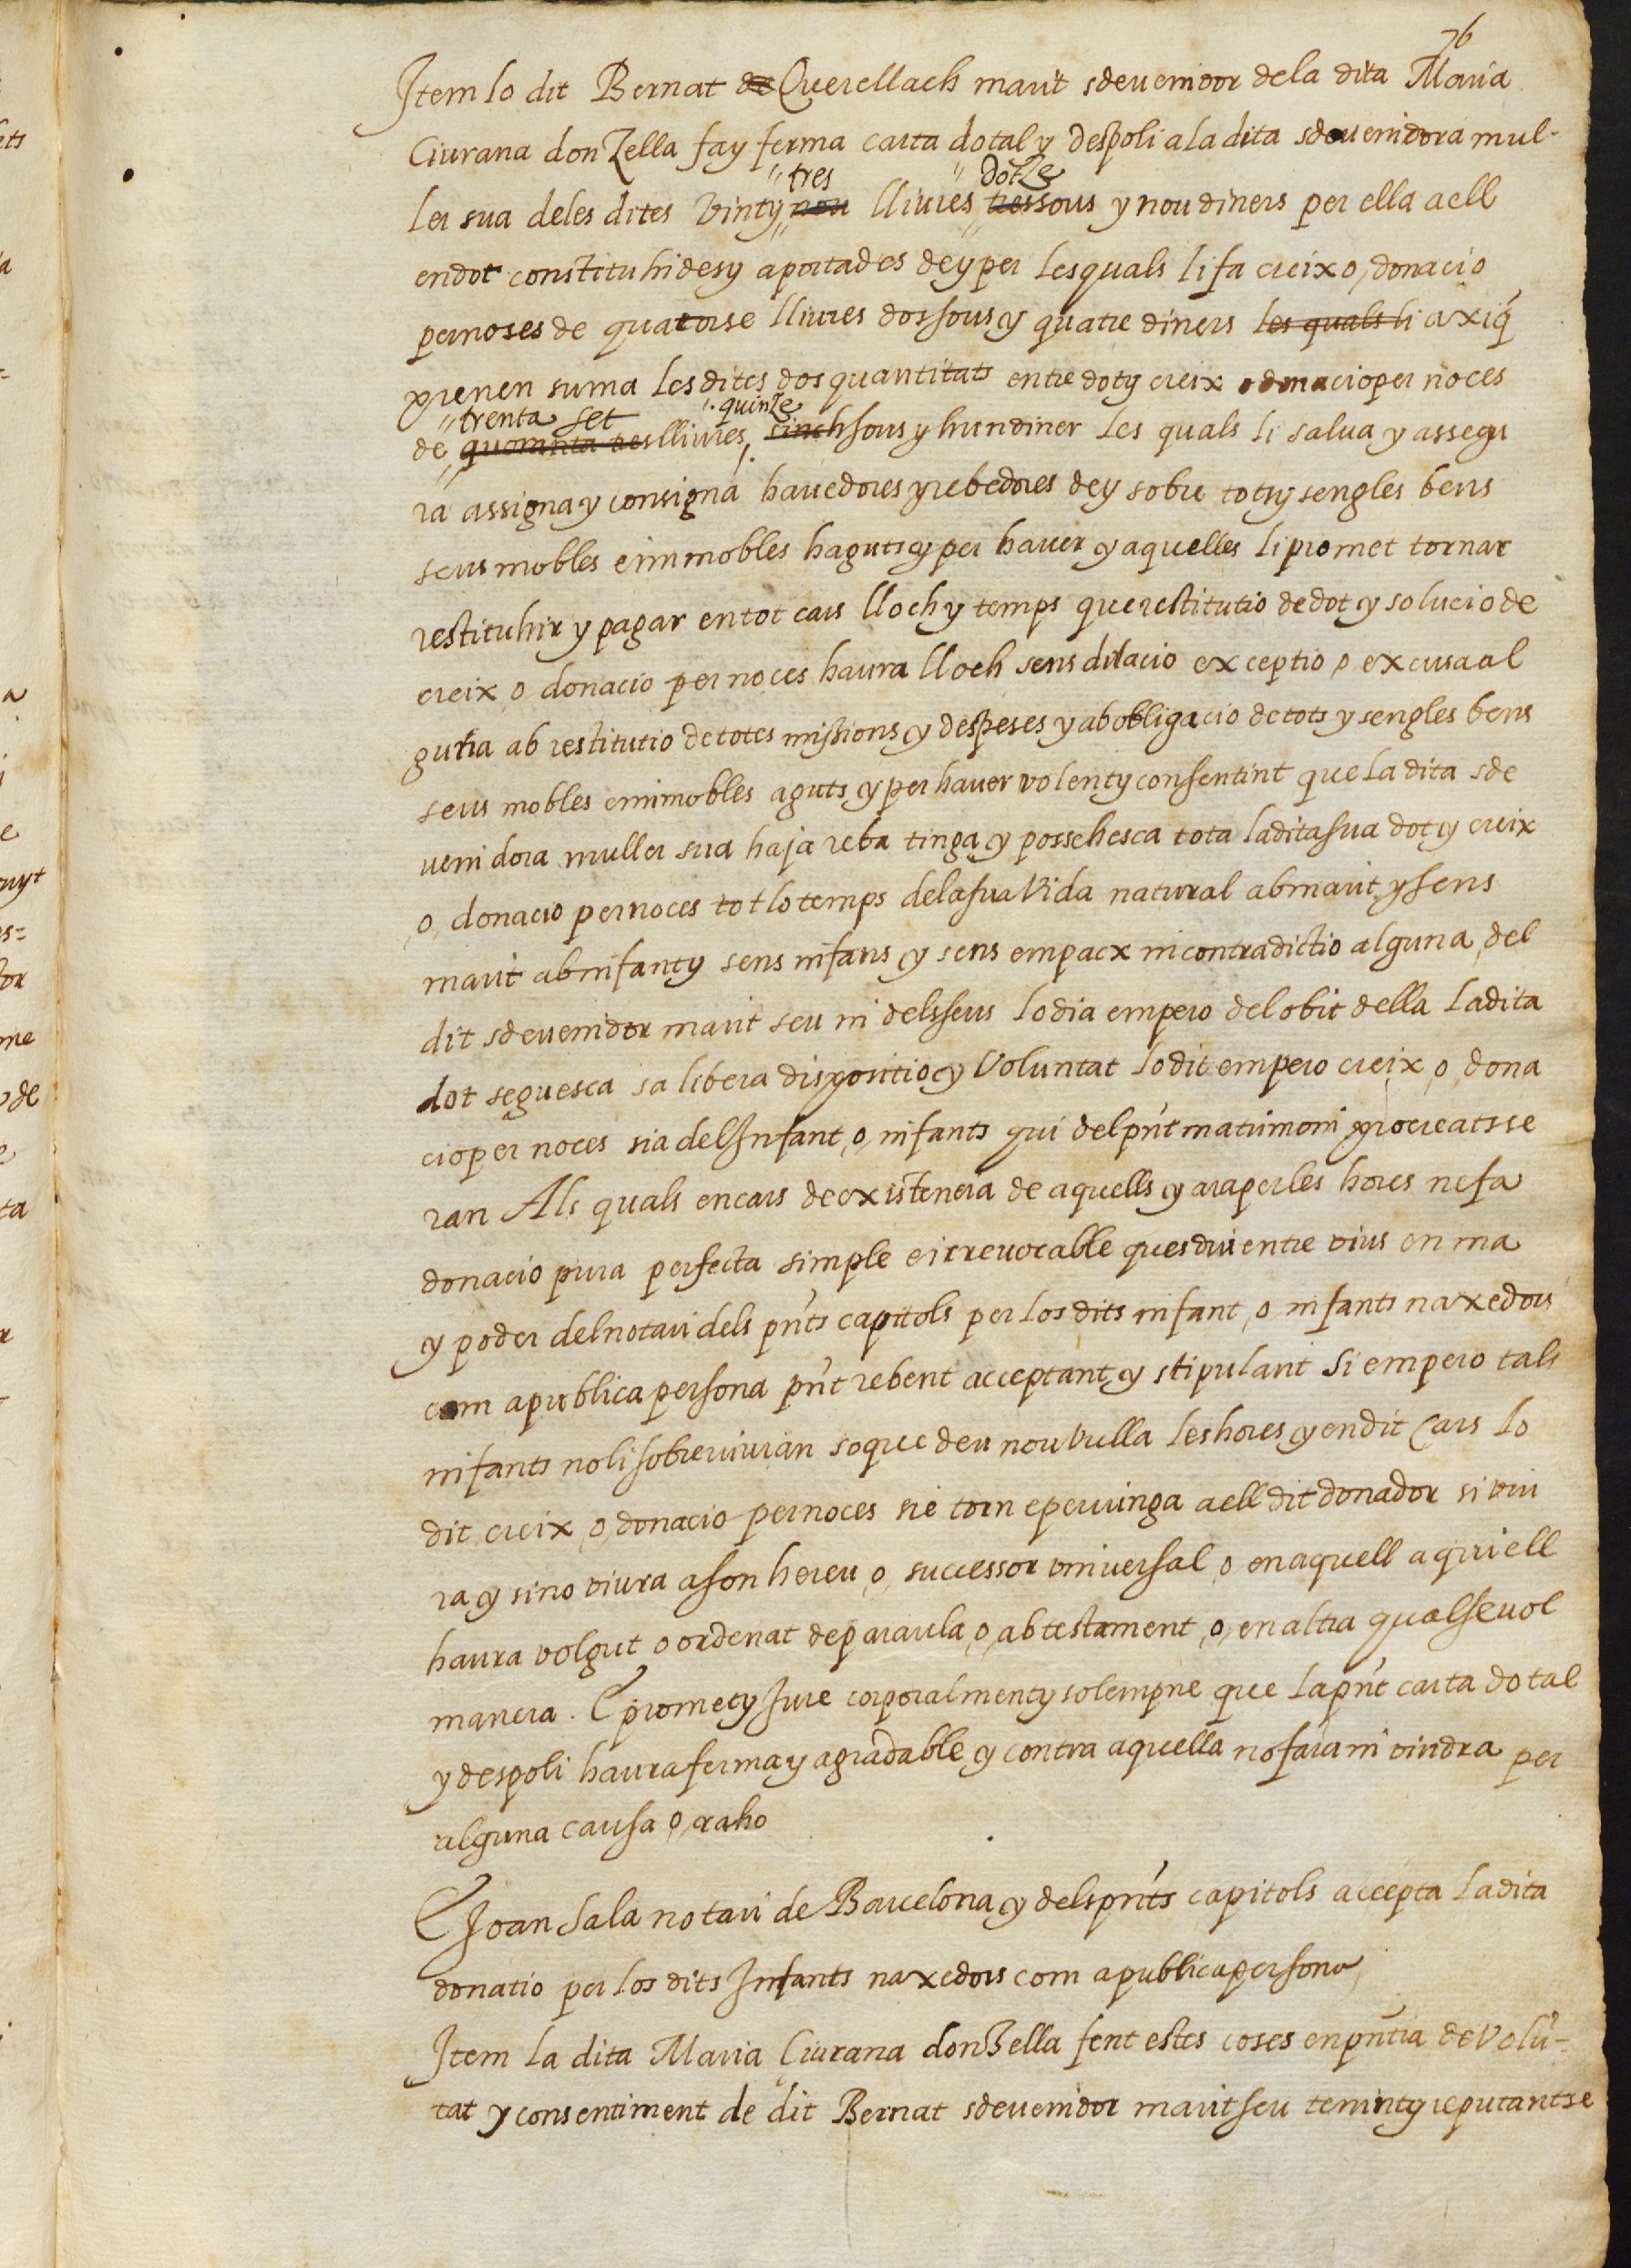 76
Item lo dit Bernat de Querellach marit sdeuenidor dela dita Maria
Ciurana donzella fa y ferma carta dotal y despoli ala dita sdeuenidora mul-
tres dotze
ler sua deles dites vint y nou lliures tres sous y nou diners per ella a ell
en dot constituhides y aportades de y per les quals li fa creix o donacio
per noses de quatorse lliures dos sous y quatre diners les quals li axi q̃
prenen suma les dites dos quantitats entre dot y creix o donacio per noces
trenta set quinze
de quoranta tres lliures, sinch sous y hun diner les quals li salua y assegu
ra assigna y consigna hauedores y rebedores de y sobre tots y sengles bens
seus mobles e immobles haguts y per hauer y aquelles li promet tornar
restituhir y pagar en tot cars lloch y temps que restitutio de dot y solucio de
creix o donacio per noces haura lloch sens dilacio exceptio o excusa al
guña ab restitutio de totes missions y despeses y ab obligacio de tots y sengles bens
seus mobles e immobles aguts y per hauer volent y consentint que la dita sde
uenidora muller sua haja reba tinga y possehesca tota la dita sua dot y creix
o donacio per noces tot lo temps dela sua vida natural ab marit y sens
marit ab infant y sens infans y sens empacx ni contradictio alguna del
dit sdeuenidor marit seu ni dels seus lo dia empero del obit della la dita
dot seguesca sa libera dispositio y voluntat lo dit empero creix o dona
cio per noces sia del Infant o infants qui del pñt matrimoni procreats se
ran Als quals en cars de existencia de aquells y ara per les hores ne fa
donacio pura perfecta simple e irreuocable ques diu entre vius en ma
y poder del notari dels pñts capitols per los dits infant o infants naxedors
com a publica persona pñt rebent acceptant y stipulant Si empero tals
infants no li sobreviuran so que deu nou vulla les hores y en dit cars lo
dit creix o donacio per noces sie torn e peruinga a ell dit donador si viu
ra y si no viura a son hereu o successor vniuersal o en aquell a qui ell
haura volgut o ordenat de paraula o ab testament o en altra qualseuol
manera. E promet y Jure corporalment y solempne que la pñt carta dotal
y despoli haura ferma y agradable y contra aquella no fara ni vindra per
alguna causa o raho
E Joan Sala notari de Barcelona y dels pñts capitols accepta la dita
donatio per los dits Infants naxedors com a publica persona
Item la dita Maria Ciurana donzella fent estes coses en pñtia de volũ-
tat y consentiment de dit Bernat sdeuenidor marit seu tenint y reputantse